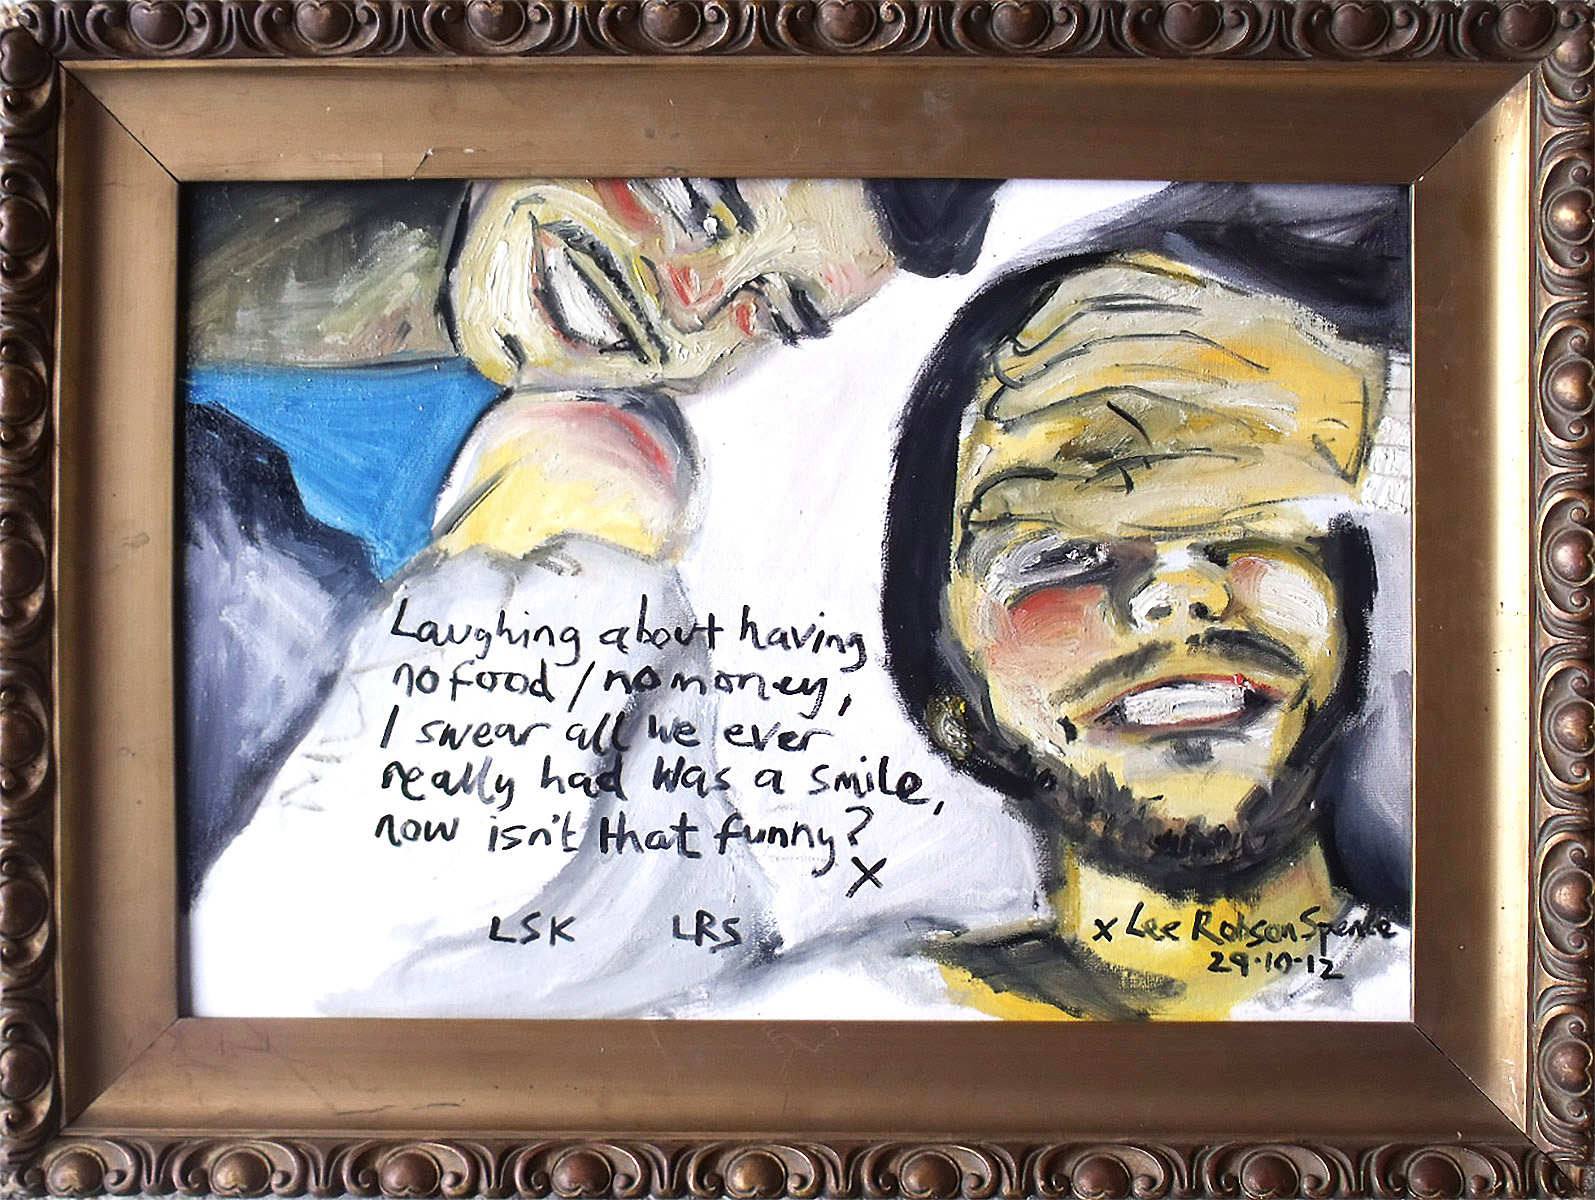 Laughing about having
no food / no money,
I swear all we ever
really had was a smile,
now isn't that funny?
X
LSK LRS
x Lee Robson Spence
29·10·12